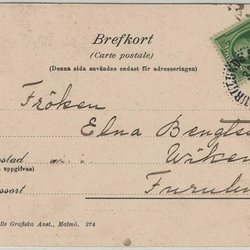 Brefkort
(Carte postale)
(Denna sida användes endast för adresseringen)
Fröken
Elna Bengts
Wiken
Furulu
ostad
uppgifvas)
ssort
lls Grafiska Anst., Malmö. 274